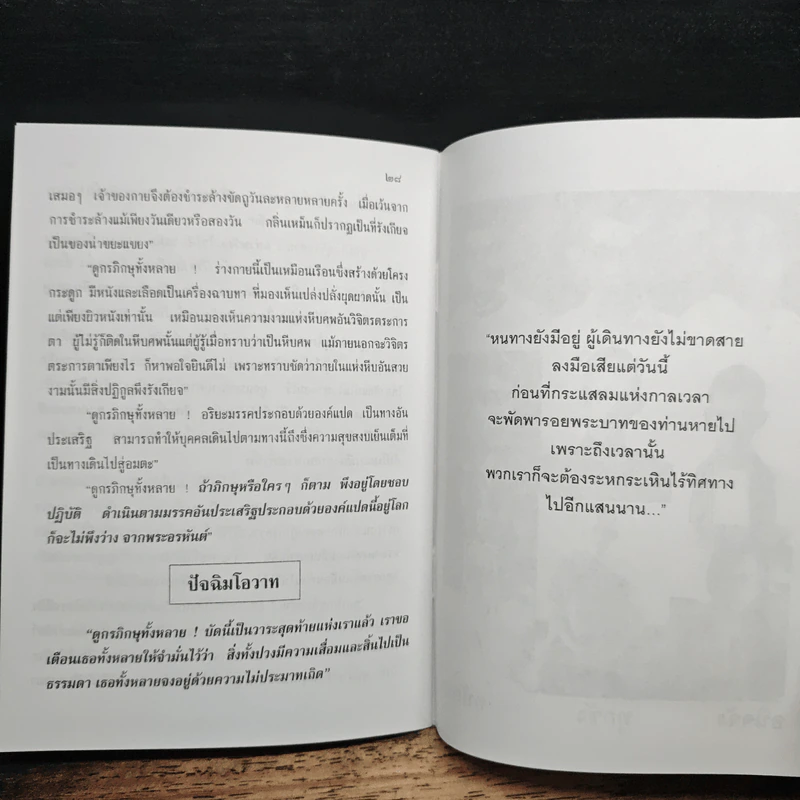 ๒๘
เสมอๆ เจ้าของกายจึงต้องชำระล้างขัดถูวันละหลายหลายครั้ง เมื่อเว้นจาก
การชำระล้างแม้เพียงวันเดียวหรือสองวัน กลิ่นเหม็นก็ปรากฏเป็นที่รังเกียจ
เป็นของน่าขยะแขยง"
"ดูกรภิกษุทั้งหลาย ! ร่างกายนี้เป็นเหมือนเรือนซึ่งสร้างด้วยโครง
กระดูก มีหนังและเลือดเป็นเครื่องฉาบทา ที่มองเห็นเปล่งปลั่งผุดผาดนั้น เป็น
แต่เพียงผิวหนังเท่านั้น เหมือนมองเห็นความงามแห่งหีบศพอันวิจิตรตระการ
ตา ผู้ไม่รู้ก็ติดในหีบศพนั้นแต่ผู้รู้เมื่อทราบว่าเป็นหีบศพ แม้ภายนอกจะวิจิตร
ตระการตาเพียงไร ก็หาพอใจยินดีไม่ เพราะทราบชัดว่าภายในแห่งหีบอันสวย
งามนั้นมีสิ่งปฏิกูลพึงรังเกียจ"
"ดูกรภิกษุทั้งหลาย ! อริยะมรรคประกอบด้วยองค์แปด เป็นทางอัน
ประเสริฐ สามารถทำให้บุคคลเดินไปตามทางนี้ถึงซึ่งความสุขสงบเย็นเต็มที่
เป็นทางเดินไปสู่อมตะ"
"ดูกรภิกษุทั้งหลาย ! ถ้าภิกษุหรือใครๆ ก็ตาม พึงอยู่โดยชอบ
ปฏิบัติ ดำเนินตามมรรคอันประเสริฐประกอบด้วยองค์แปดนี้อยู่โลก
ก็จะไม่พึงว่าง จากพระอรหันต์"
ปัจฉิมโอวาท
"ดูกรภิกษุทั้งหลาย ! บัดนี้เป็นวาระสุดท้ายแห่งเราแล้ว เราขอ
เตือนเธอทั้งหลายให้จำมั่นไว้ว่า สิ่งทั้งปวงมีความเสื่อมและสิ้นไปเป็น
ธรรมดา เธอทั้งหลายจงอยู่ด้วยความไม่ประมาทเถิด"
"หนทางยังมีอยู่ ผู้เดินทางยังไม่ขาดสาย
ลงมือเสียแต่วันนี้
ก่อนที่กระแสลมแห่งกาลเวลา
จะพัดพารอยพระบาทของท่านหายไป
เพราะถึงเวลานั้น
พวกเราก็จะต้องระหกระเหินไร้ทิศทาง
ไปอีกแสนนาน..."